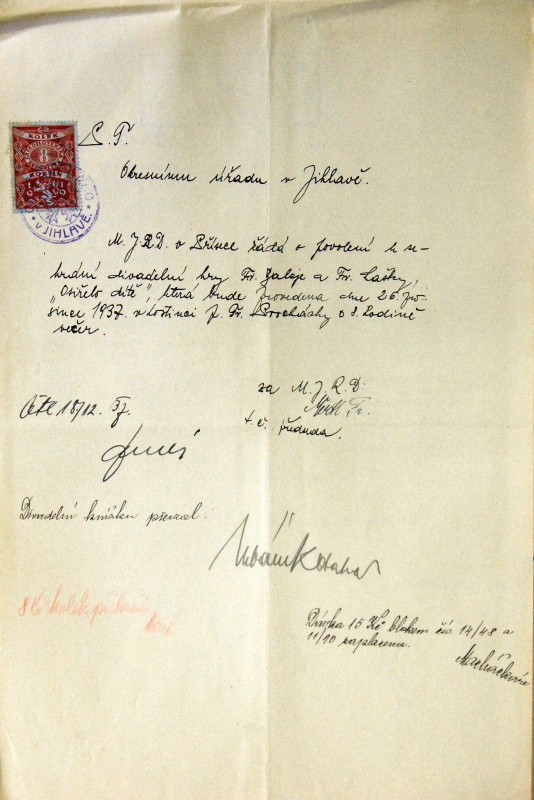 KOLEK
8
V JIHLAVĚ.
S. T.
Okresnímu úřadu v Jihlavě.
M. J. R. D. v Přínce žádá o povolení k se-
hrání divadelní hry Fr. Baleje a Fr. Lašky,
„Osiřelo dítě“, která bude provedena dne 26. pro-
since 1937. v hostinci p. Fr. Procházky o 8. hodině
večer.
za M. J. R. D:
Fr.
t. č. předseda.
18/12. 37.
Divadelní knížku převzal:
8 Kč
Dávka 15 Kč blokem čís 14/48 a
11/10 zaplacena.
Macháčková